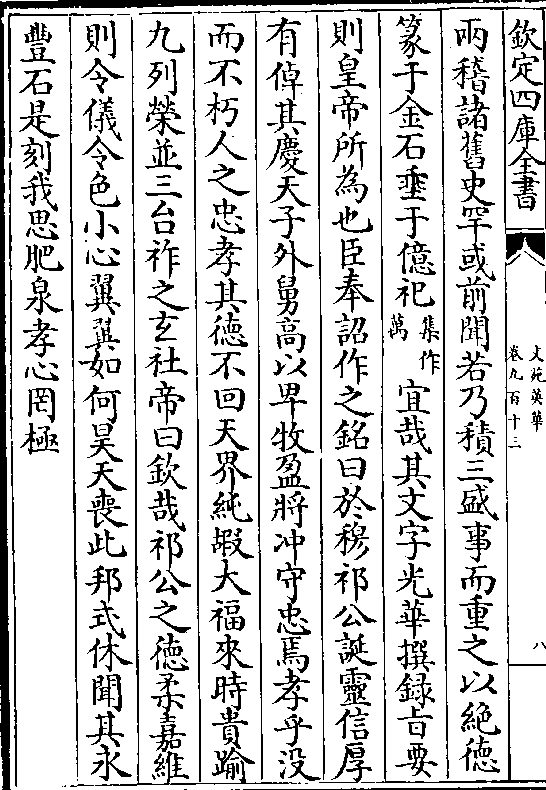 欽定四庫全書
文苑英華
卷九百十三
八
兩稽諸舊史罕或前聞若乃積三盛事而重之以絶徳
篆于金石垂于億祀集作萬宜哉其文字光華撰録旨要
則皇帝所為也臣奉詔作之銘曰於穆祁公誕靈信厚
有倬其慶天子外舅高以卑牧盈將冲守忠焉孝乎没
而不朽人之忠孝其徳不回天畀純嘏大福來時貴踰
九列榮並三台祚之玄社帝曰欽哉祁公之徳柔嘉維
則令儀令色小心翼翼如何昊天喪此邦式休聞其永
豐石是刻我思肥泉孝心罔極